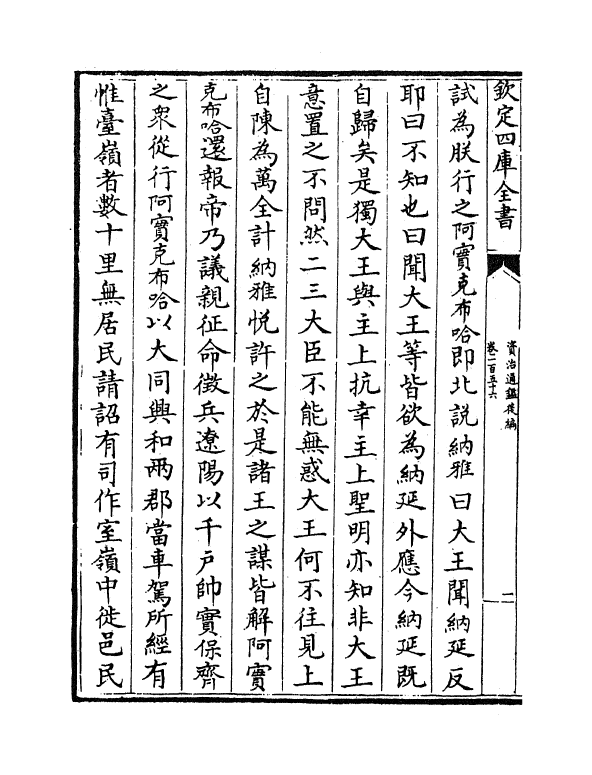 欽定四庫全書
資治通鑑後編
卷一百五十六
一
試為朕行之阿實克布哈即北説納雅曰大王聞納延反
耶曰不知也曰聞大王等皆欲為納延外應今納延既
自歸矣是獨大王與主上抗幸主上聖明亦知非大王
意置之不問然二三大臣不能無惑大王何不往見上
自陳為萬全計納雅悦許之於是諸王之謀皆解阿實
克布哈還報帝乃議親征命徵兵遼陽以千戶帥實保齊
之衆從行阿實克布哈以大同興和兩郡當車駕所經有
惟臺嶺者數十里無居民請詔有司作室嶺中徙邑民